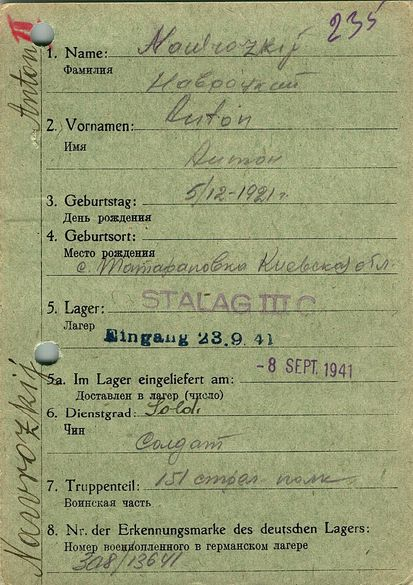 235
1. Name: Nawrozkij
Фамилия
Навроцкий
2. Vornamen: Anton
Имя
Антон
3. Geburtstag: 5/12-1921 г.
День рождения
4. Geburtsort:
Место рождения
с. Татарановка Киевская обл.
5. Lager: STALAG III C
Лагер
Eingang 23.9.41
-8 SEPT. 1941
5a. Im Lager eingeliefert am:
Доставлен в лагер (число)
6. Dienstgrad: Sold.
Чин
Солдат
7. Truppenteil: 151 стрел-полк
Воинская часть
8. Nr. der Erkennungsmarke des deutschen Lagers:
Номер военнопленного в германском лагере
308/13641
Nawrozkij Anton